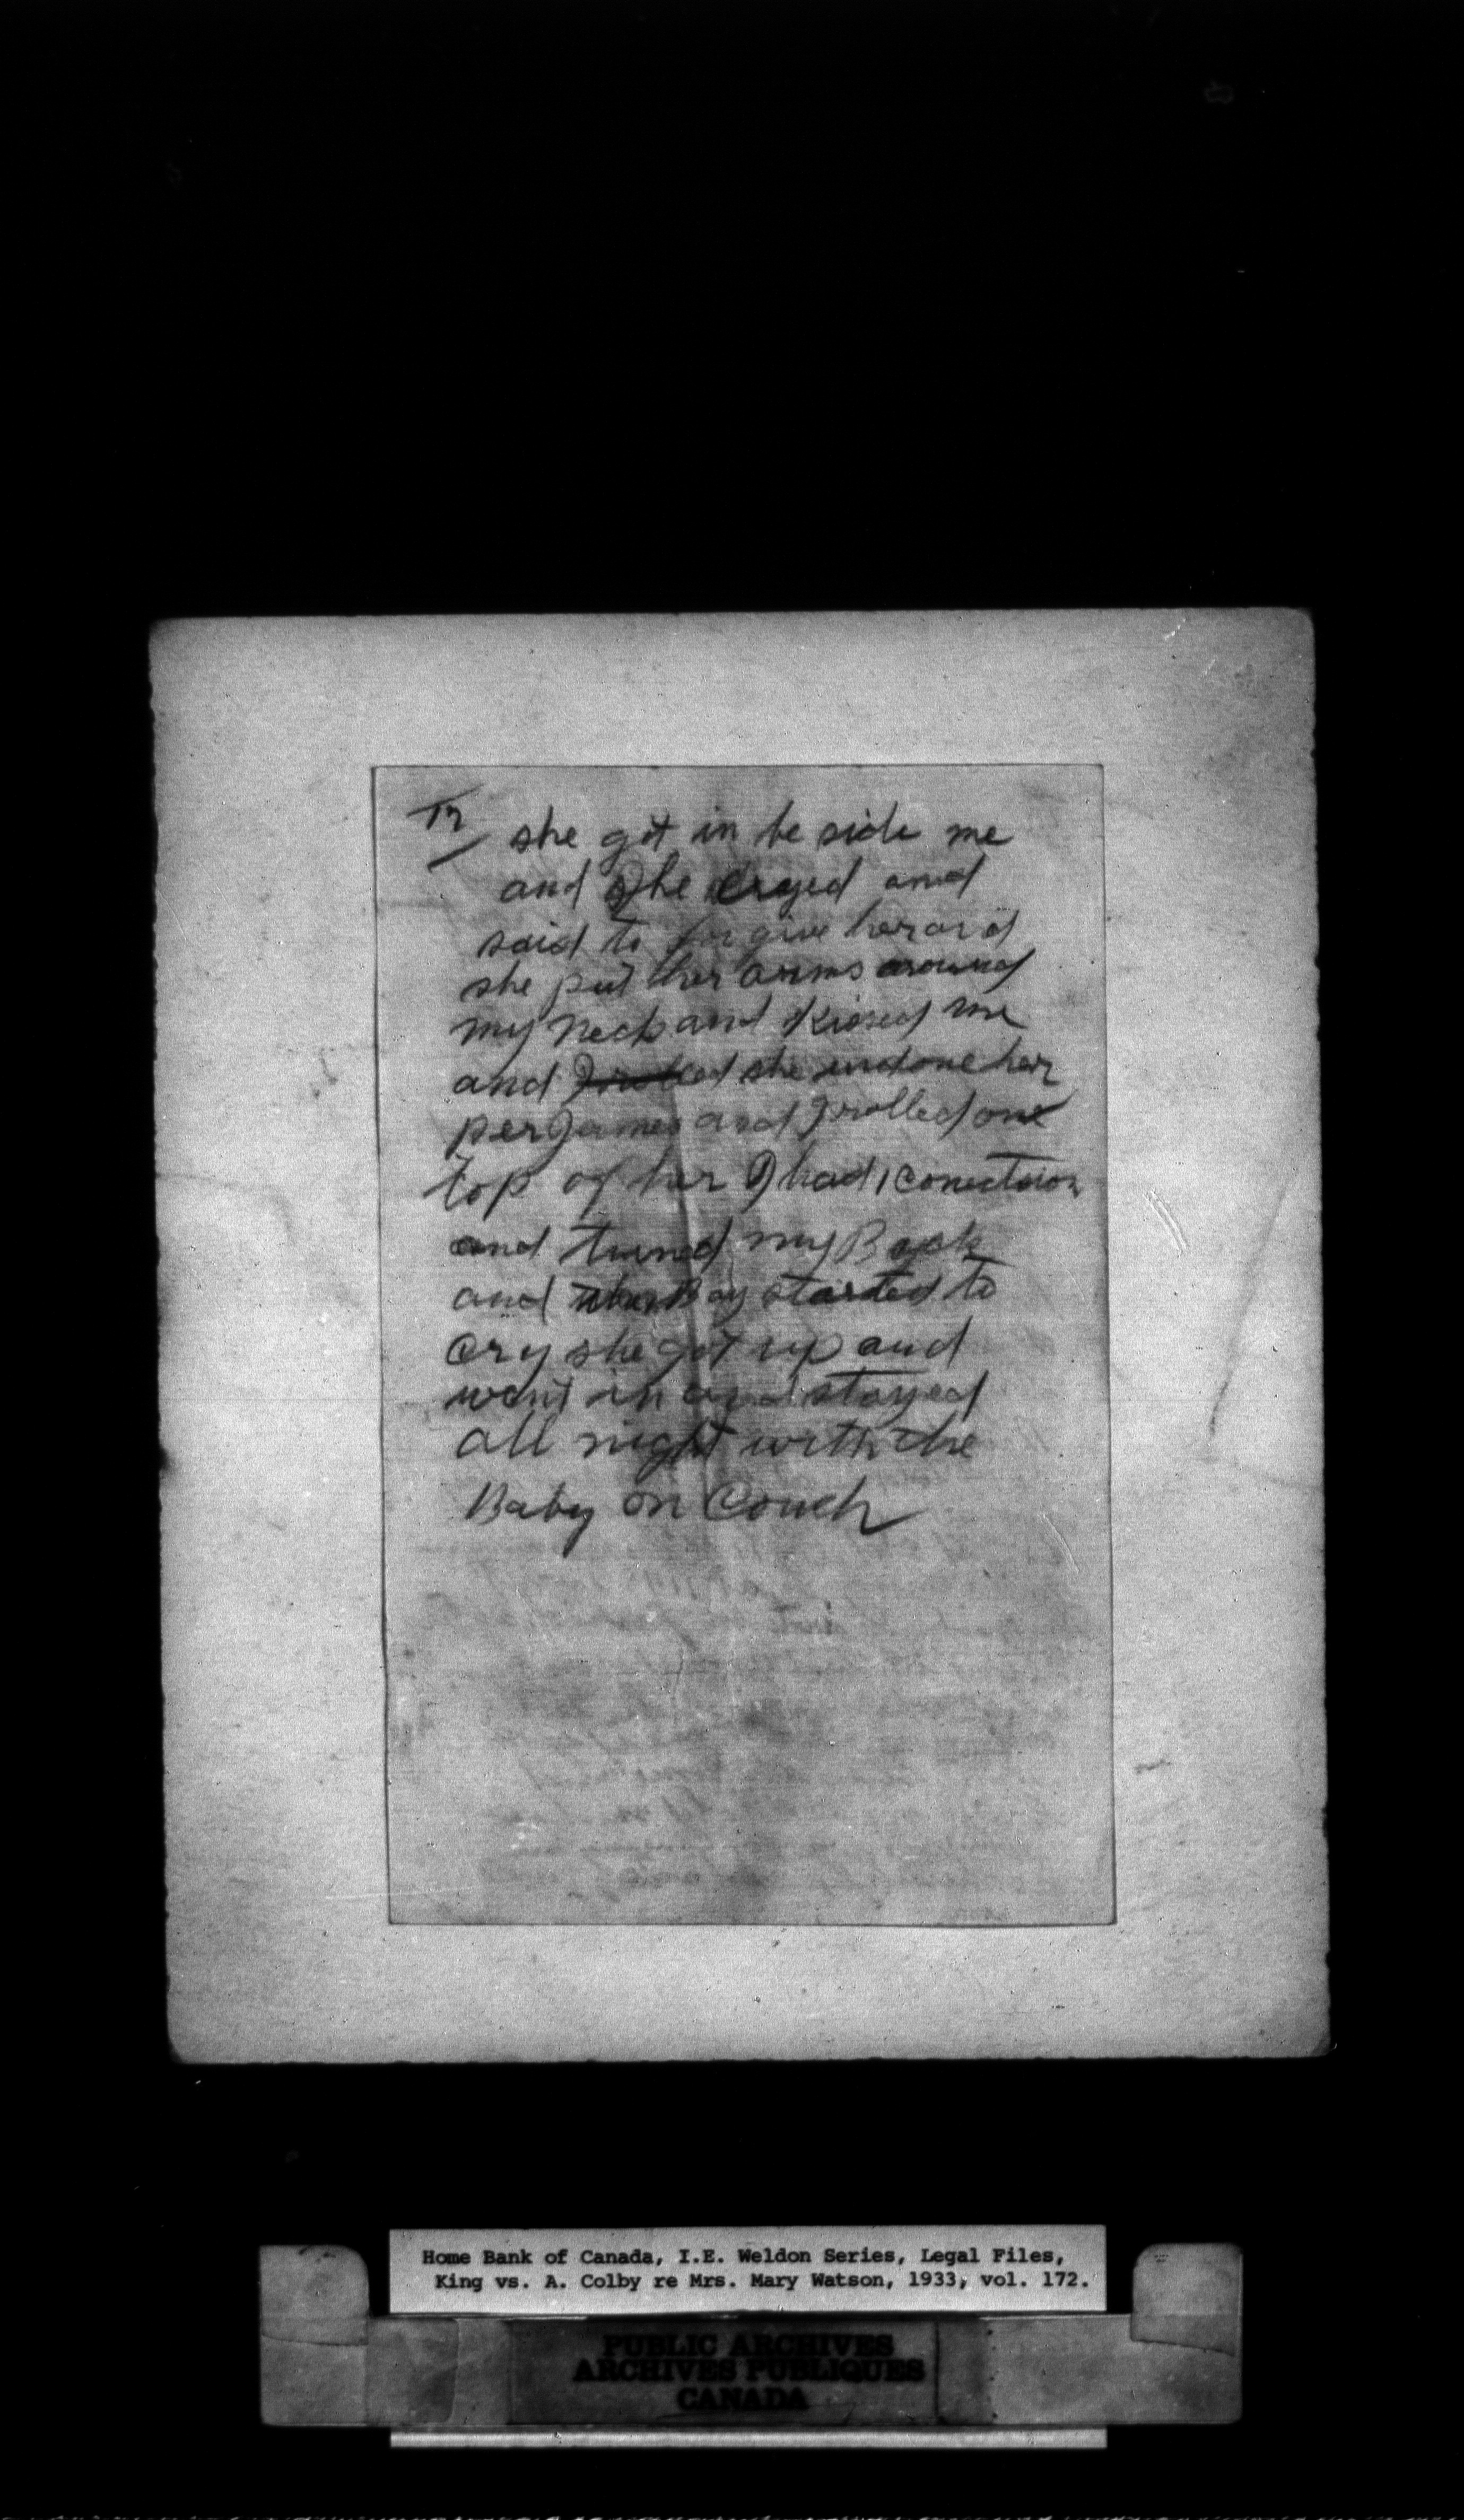 12
she got in be side me
and She cryed and
said to for give her and
she put her arms around
my neck and Kissed me
and I rolled she undone her
perjames and I rolled one
top of her I had conection
and turned my Back
and the Bay started to
cry she got up and
went in and stayed
all night with the
Baby on Couch
Home Bank of Canada, I.E. Weldon Series, Legal Files,
King vs. A. Colby re Mrs. Mary Watson, 1933, vol. 172.
PUBLIC ARCHIVES
ARCHIVES PUBLIQUES
CANADA